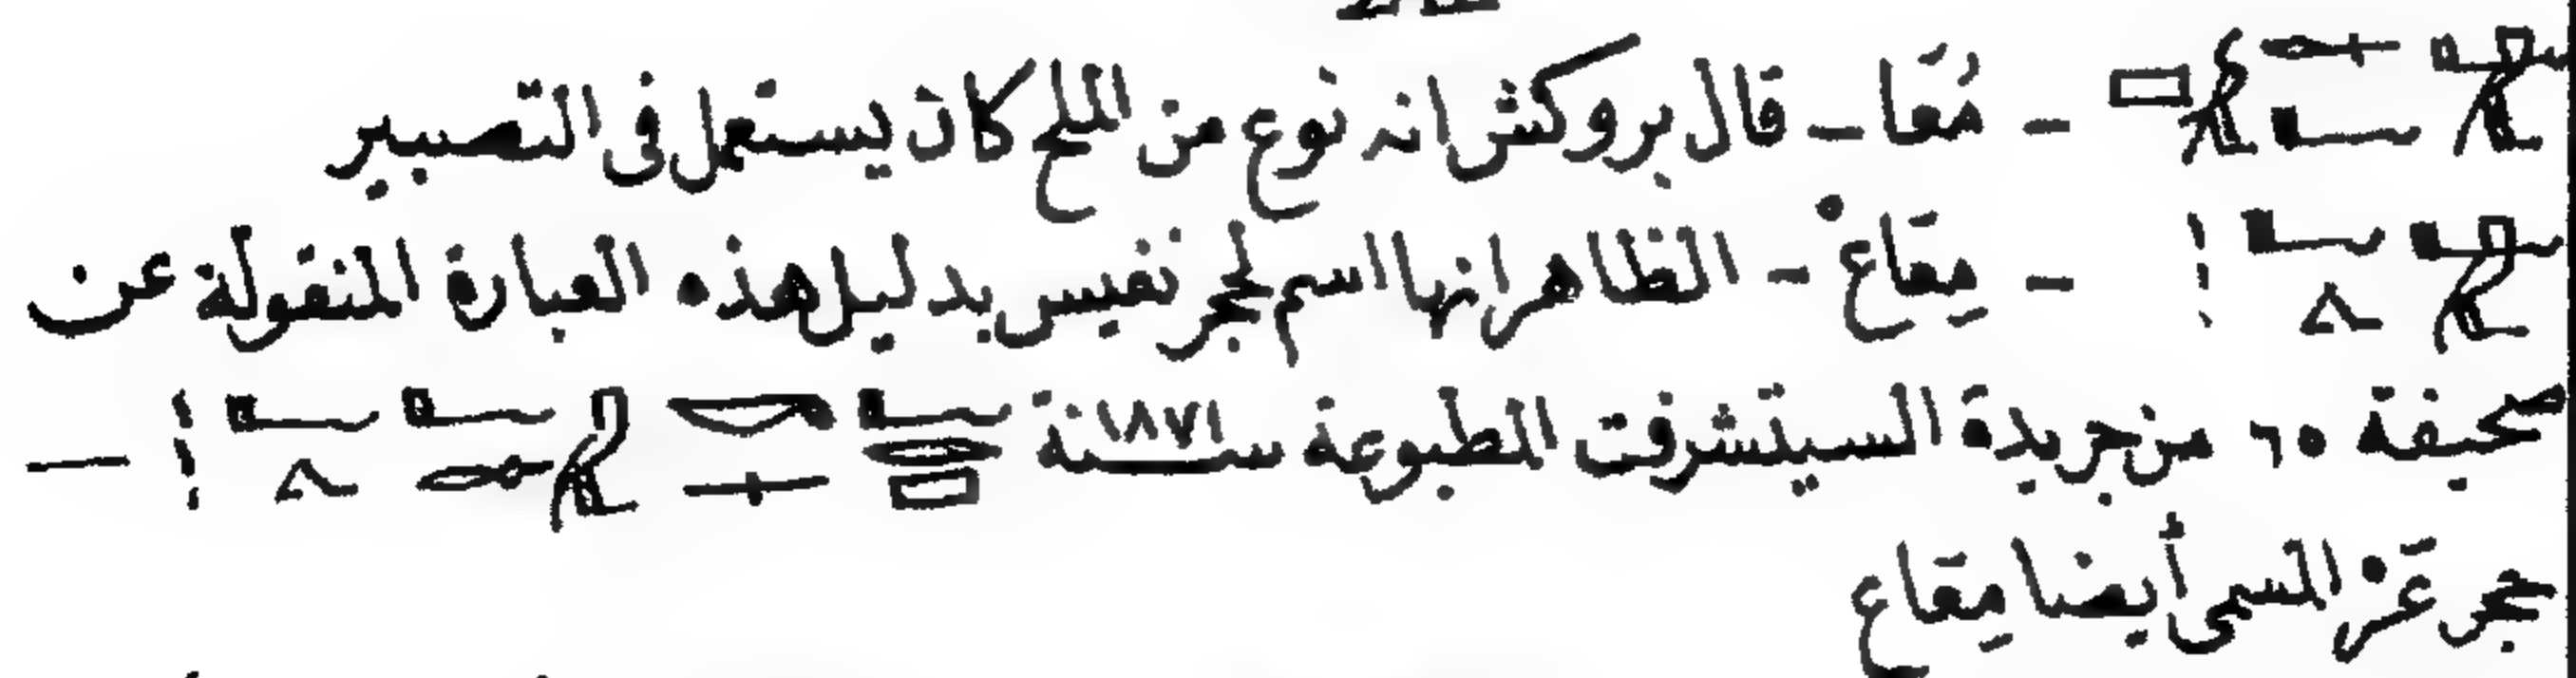 - مُقَا - قال بروكش انه نوع من الملح كان يستعمل فى التصبير
- مِقَاعْ - الظاهر انها اسم لحجر نفيس بدليل هذه العبارة المنقولة عن
صحيفة ٦٥ من جريدة السيتشرفت المطبوعة سنة ١٨٧١ —
حجر المسمى أيضا مِقَاع